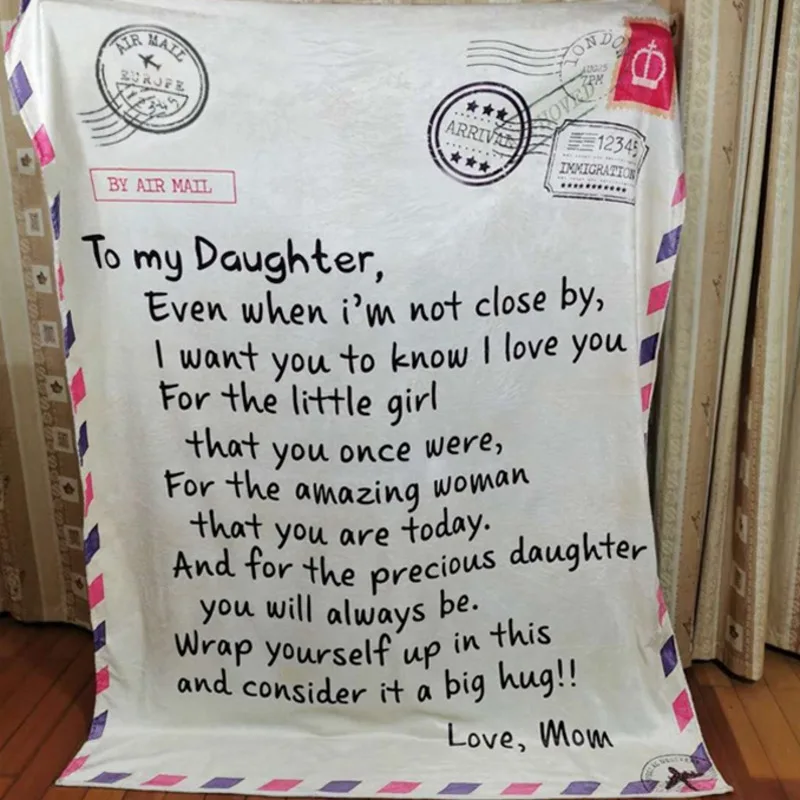 AIR MAIL
EUROPE
12345
LONDON
7PM
ARRIVAL
12345
IMMIGRATION
BY AIR MAIL
To my Daughter,
Even when i'm not close by,
I want you to know I love you
For the little girl
that you once were,
For the amazing woman
that you are today.
And for the precious daughter
you will always be.
Wrap yourself up in this
and consider it a big hug!!
Love, Mom